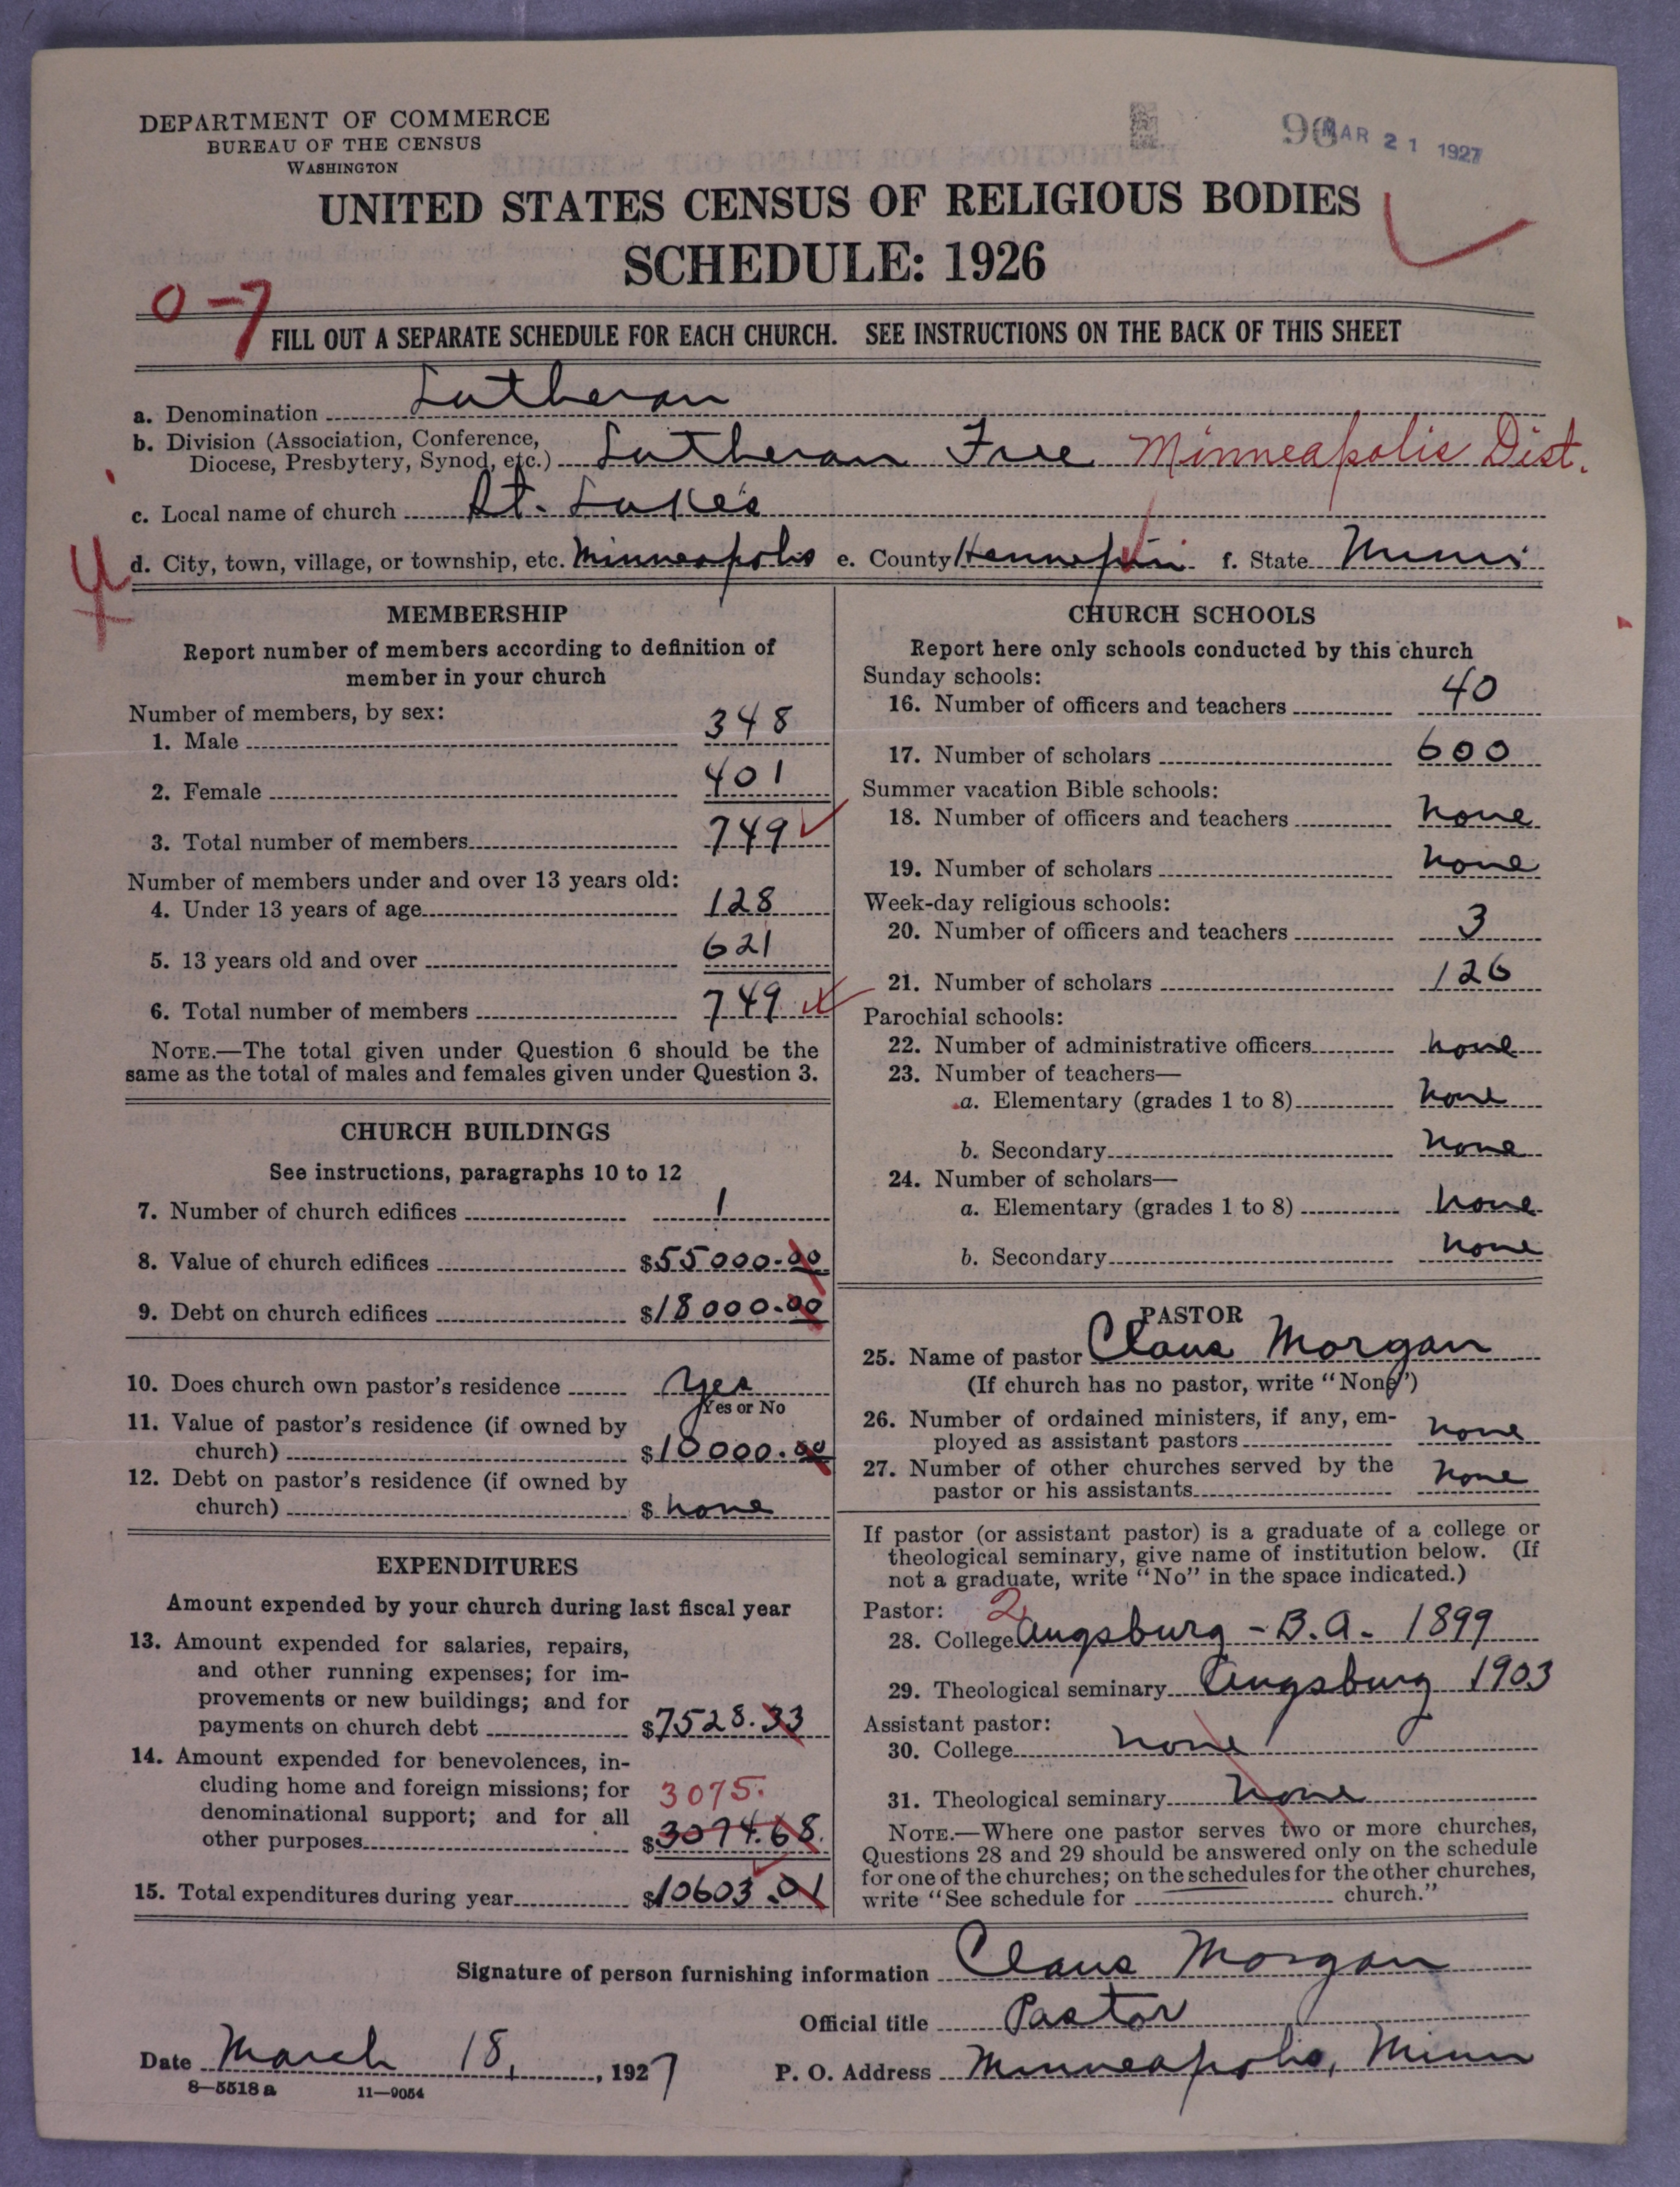 DEPARTMENT OF COMMERCE
BUREAU OF THE CENSUS
WASHINGTON
MAR 21 1927
UNITED STATES CENSUS OF RELIGIOUS BODIES
SCHEDULE: 1926
0-7
FILL OUT A SEPARATE SCHEDULE FOR EACH CHURCH. SEE INSTRUCTIONS ON THE BACK OF THIS SHEET
a. Denomination Lutheran
b. Division (Association, Conference,
Diocese, Presbytery, Synod, etc.) Lutheran Free Minneapolis Dist.
c. Local name of church St. Luke's
d. City, town, village, or township, etc. Minneapolis e. County Hennepin f. State Minn
MEMBERSHIP
Report number of members according to definition of
member in your church
Number of members, by sex:
1. Male 348
2. Female 401
3. Total number of members 749
Number of members under and over 13 years old:
4. Under 13 years of age 128
5. 13 years old and over 621
6. Total number of members 749
NOTE.—The total given under Question 6 should be the
same as the total of males and females given under Question 3.
CHURCH BUILDINGS
See instructions, paragraphs 10 to 12
7. Number of church edifices 1
8. Value of church edifices $55000.00
9. Debt on church edifices $18000.00
10. Does church own pastor's residence yes
Yes or No
11. Value of pastor's residence (if owned by
church) $10000.00
12. Debt on pastor's residence (if owned by
church) $ none
EXPENDITURES
Amount expended by your church during last fiscal year
13. Amount expended for salaries, repairs,
and other running expenses; for im-
provements or new buildings; and for
payments on church debt $7528.33
14. Amount expended for benevolences, in-
cluding home and foreign missions; for 3075.
denominational support; and for all
other purposes $3074.68
15. Total expenditures during year $10603.01
CHURCH SCHOOLS
Report here only schools conducted by this church
Sunday schools:
16. Number of officers and teachers 40
17. Number of scholars 600
Summer vacation Bible schools:
18. Number of officers and teachers none
19. Number of scholars none
Week-day religious schools:
20. Number of officers and teachers 3
21. Number of scholars 126
Parochial schools:
22. Number of administrative officers none
23. Number of teachers—
a. Elementary (grades 1 to 8) none
b. Secondary none
24. Number of scholars—
a. Elementary (grades 1 to 8) none
b. Secondary none
PASTOR
25. Name of pastor Claus Morgan
(If church has no pastor, write "None")
26. Number of ordained ministers, if any, em-
ployed as assistant pastors none
27. Number of other churches served by the
pastor or his assistants none
If pastor (or assistant pastor) is a graduate of a college or
theological seminary, give name of institution below. (If
not a graduate, write "No" in the space indicated.)
Pastor: 2
28. College Augsburg - B.A. 1899
29. Theological seminary Augsburg 1903
Assistant pastor:
30. College none
31. Theological seminary none
NOTE.—Where one pastor serves two or more churches,
Questions 28 and 29 should be answered only on the schedule
for one of the churches; on the schedules for the other churches,
write "See schedule for church."
Signature of person furnishing information Claus Morgan
Official title Pastor
Date March 18, 1927 P. O. Address Minneapolis, Minn
8—5518 a 11—9054